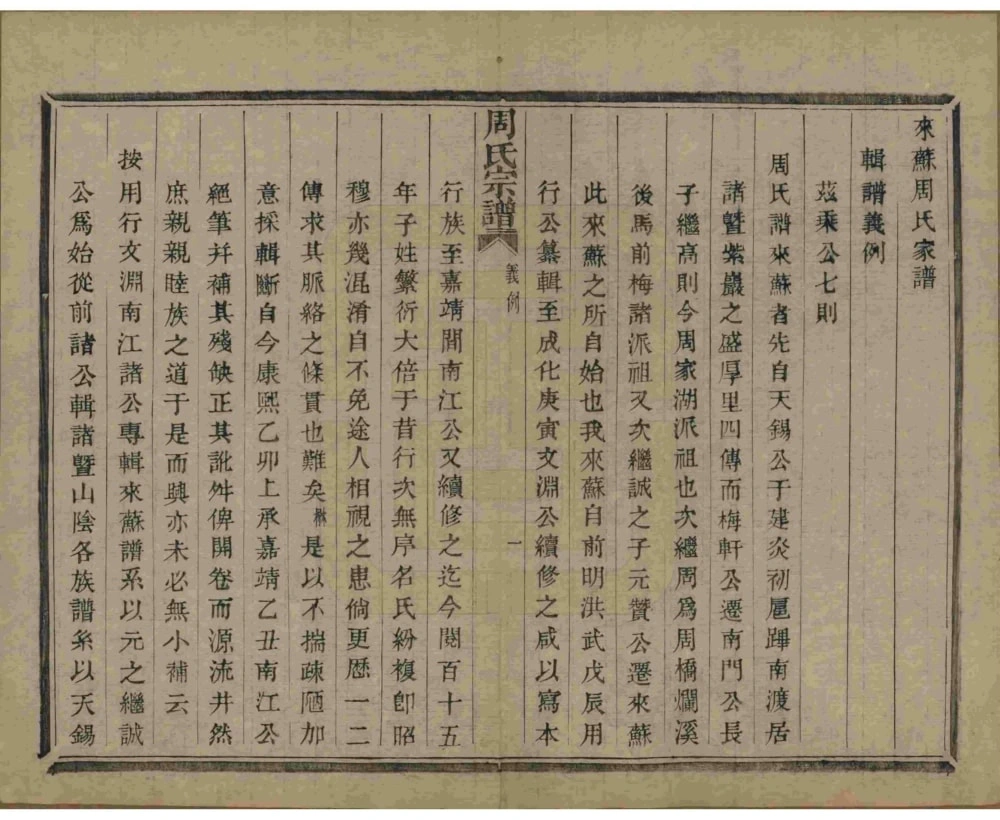 來蘇周氏家譜
輯譜義例
茲乘公七則
周氏譜來蘇者先自天錫公于建炎初扈蹕南渡居
諸暨紫巖之盛厚里四傳而梅軒公遷南門公長
子繼高則今周家湖派祖也次繼周為周橋爛溪
後馬前梅諸派祖又次繼誠之子元贊公遷來蘇
此來蘇之所自始也我來蘇自前明洪武戊辰用
行公纂輯至成化庚寅文淵公續修之咸以寫本
周氏宗譜 義例 一
行族至嘉靖間南江公又續修之迄今閱百十五
年子姓繁衍大倍于昔行次無序名氏紛複卽昭
穆亦幾混淆自不免途人相視之患倘更歷一二
傳求其脈絡之條貫也難矣 是以不揣疎陋加
意採輯斷自今康熙乙卯上承嘉靖乙丑南江公
絕筆幷補其殘缺正其訛舛俾開卷而源流井然
庶親親睦族之道于是而興亦未必無小補云
按用行文淵南江諸公專輯來蘇譜系以元之繼誠
公爲始從前諸公輯諸暨山陰各族譜系以天錫